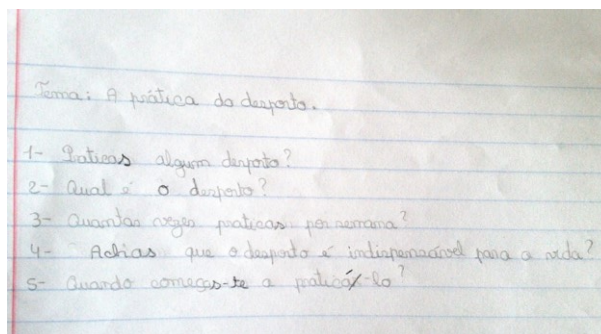 Tema: A prática do desporto.
1- Praticas algum desporto?
2- Qual é o desporto?
3- Quantas vezes praticas por semana?
4- Achas que o desporto é indispensável para a vida?
5- Quando começas-te a praticá-lo?